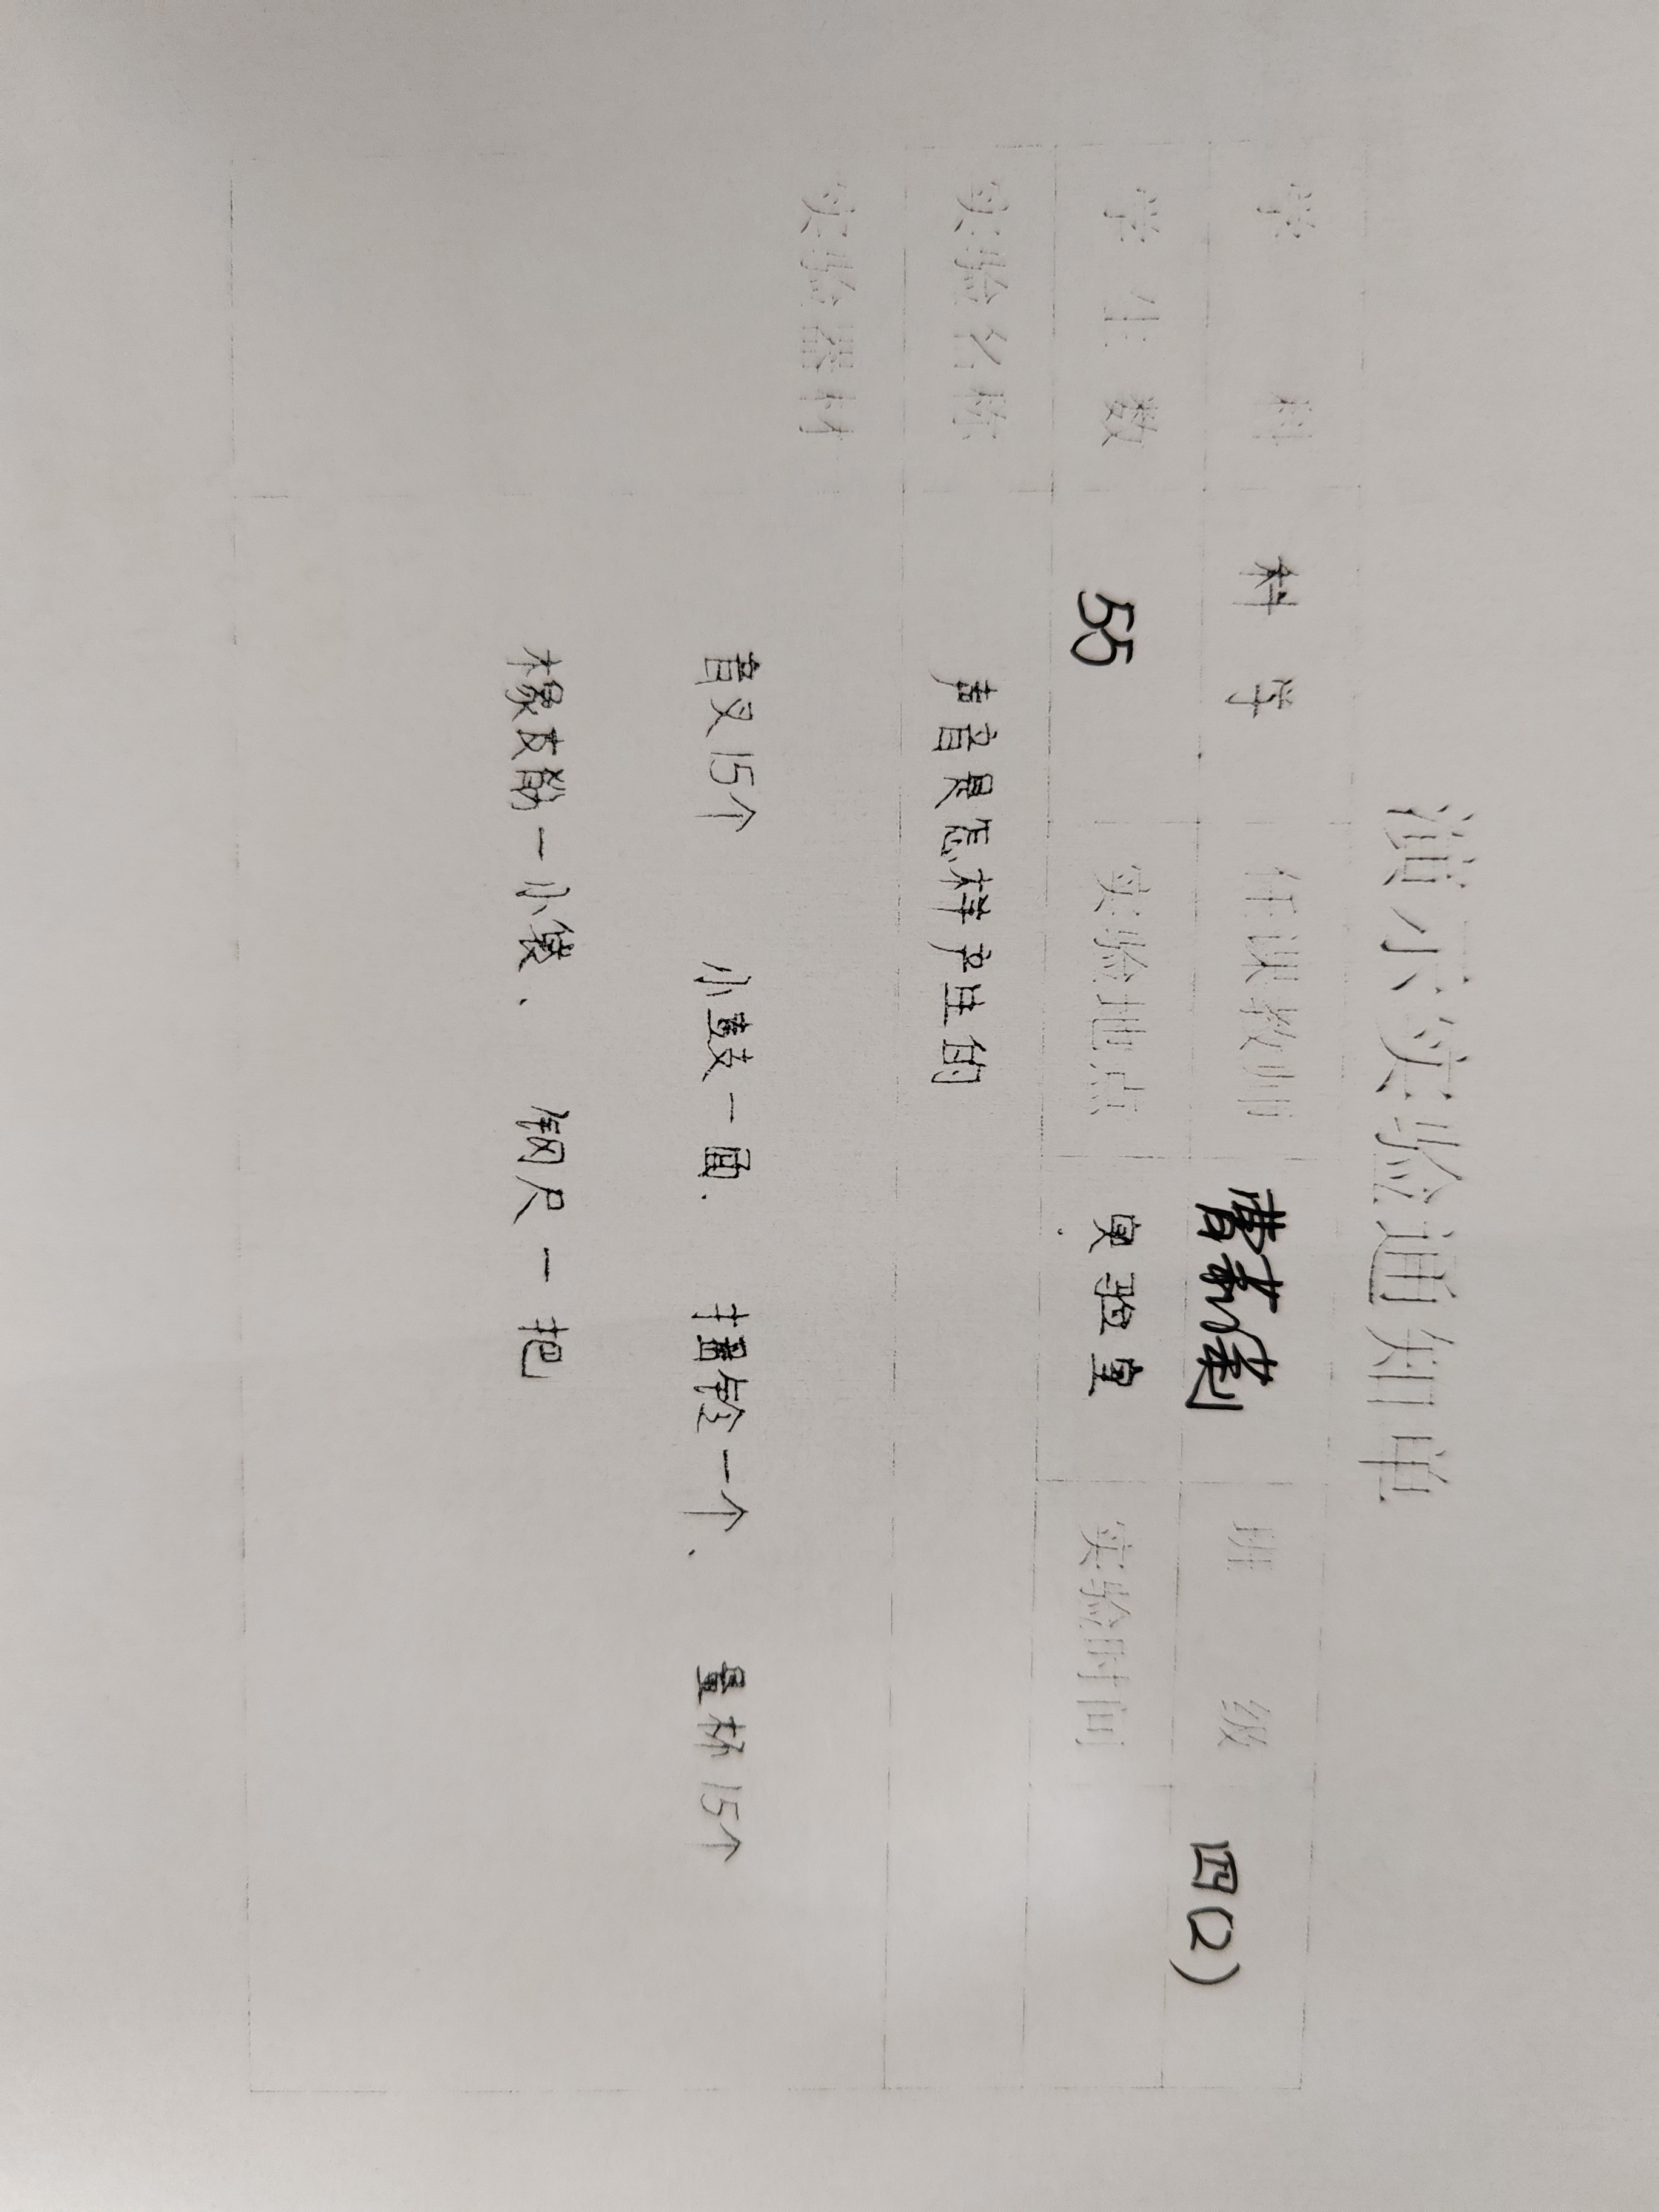 演示实验通知单
学 科 科学 任课教师 班 级 四(2)
学生数 55 实验地点 实验室 实验时间
实验名称 声音是怎样产生的
实验器材
音叉15个 小鼓一面、 捂晷铃一个、 量杯15个
橡皮筋一小袋、 钢尺一把